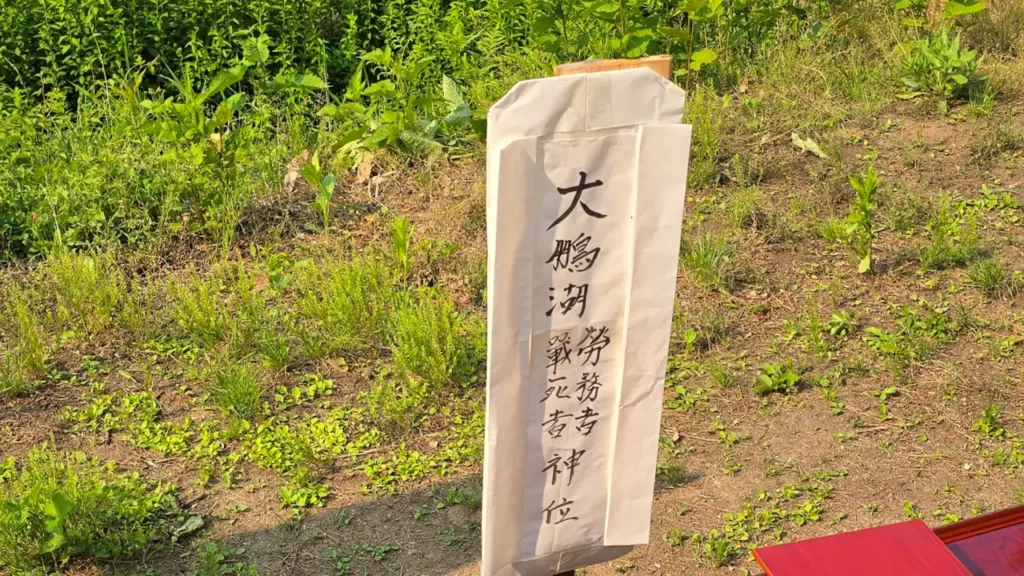 大鵬湖
勞務者
戰死者
神位